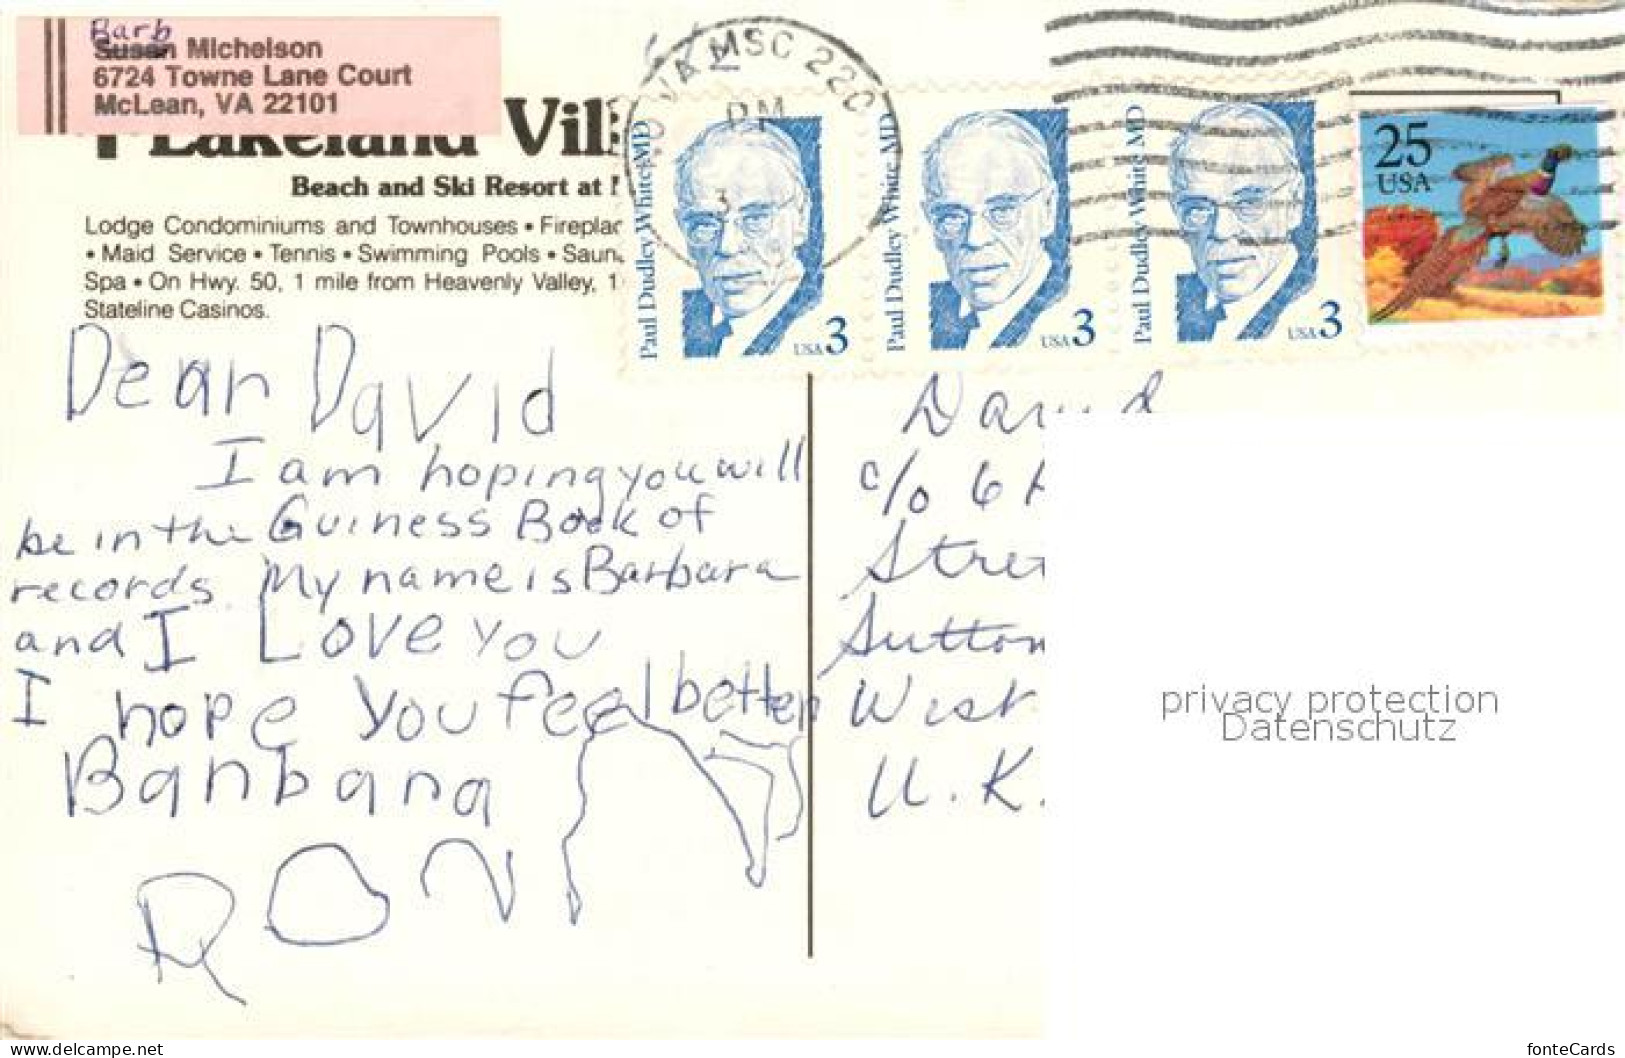 Barb
Susan Michelson
6724 Towne Lane Court
McLean, VA 22101
Lakeland Vil
Beach and Ski Resort at
Lodge Condominiums and Townhouses • Fireplac
• Maid Service • Tennis • Swimming Pools • Saun
Spa • On Hwy. 50, 1 mile from Heavenly Valley, 1
Stateline Casinos.
VA MSC 220
PM
3
Paul Dudley White MD
USA 3
Paul Dudley White MD
USA 3
Paul Dudley White MD
USA 3
25
USA
Dear David
I am hoping you will
be in the Guiness Book of
records. My name is Barbara
and I Love you
I hope you feel better
Barbara
David
c/o 6
Stre
Sutton
West
U.K.
privacy protection
Datenschutz
picclick.de
fonteCards